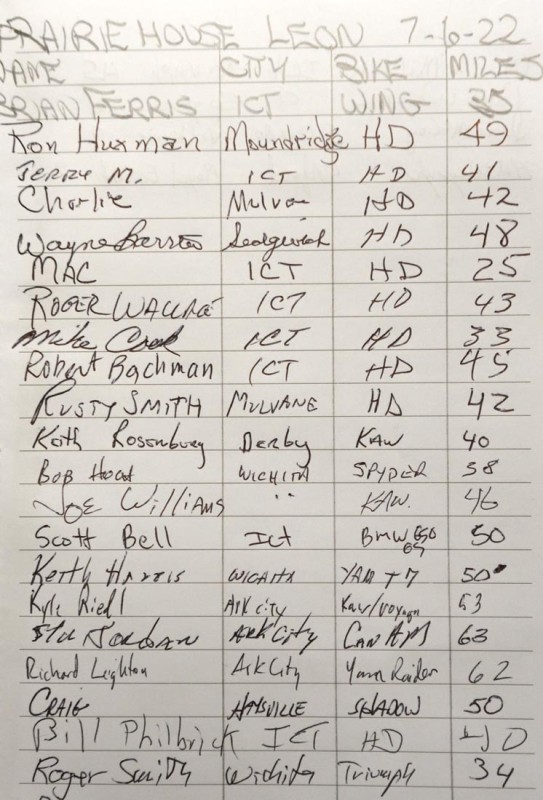 PRAIRIE HOUSE LEON 7-6-22
NAME CITY BIKE MILES
BRIAN FERRIS ICT WING 35
Ron Huxman Moundridge HD 49
JERRY M. ICT HD 41
Charlie Mulvane HD 42
Wayne Sedgwick HD 48
MAC ICT HD 25
ROGER WALLACE ICT HD 43
Mike Cook ICT HD 33
Robert Bachman ICT HD 45
RUSTY SMITH MULVANE HD 42
Keith Rosenburg Derby KAW 40
BOB WICHITA SPYDER 38
JOE Williams " KAW. 46
Scott Bell Ict BMW 650 GS 50
Keith Harris WICHITA YAM 50
Kyle Riedl Ark city Kaw/voyager 63
Stu Jordan ARK City CAN AM 63
Richard Leighton Ark City Yama Raider 62
CRAIG HAYSVILLE SHADOW 50
Bill Philbrick ICT HD 40
Roger Smith Wichita Triumph 34